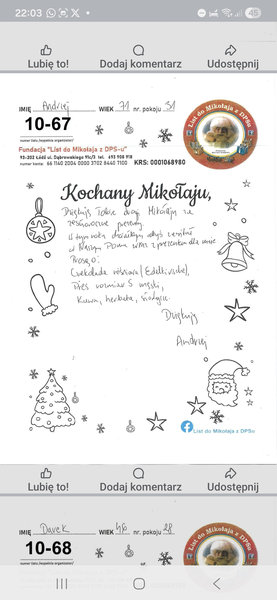 22:03
45
Lubię to!
Dodaj komentarz
Udostępnij
IMIĘ Andrzej WIEK 71 nr. pokoju 31
10-67
numer listu /wypełnia organizator/
Fundacja "List do Mikołaja z DPS-u"
93-202 Łódź ul. Dąbrowskiego 91c/3 tel. 693 908 918
numer konta: 66 1140 2004 0000 3702 8440 7100 KRS: 0001068980
List do Mikołaja z DPSu
Kochany Mikołaju,
Dziękuję Tobie drogi Mikołaju za
prezenty.
W tym roku chciałbym abyś
w Naszym Domu wraz z prezentem dla mnie
Proszę:
Czekolada różowa (E. ),
Dres rozmiar S męski,
Kawa, herbata, słodycze.
Dziękuję
Andrzej
List do Mikołaja z DPSu
Lubię to!
Dodaj komentarz
Udostępnij
IMIĘ Darek WIEK 46 nr. pokoju 28
10-68
numer listu /wypełnia organizator/
List do Mikołaja z DPSu